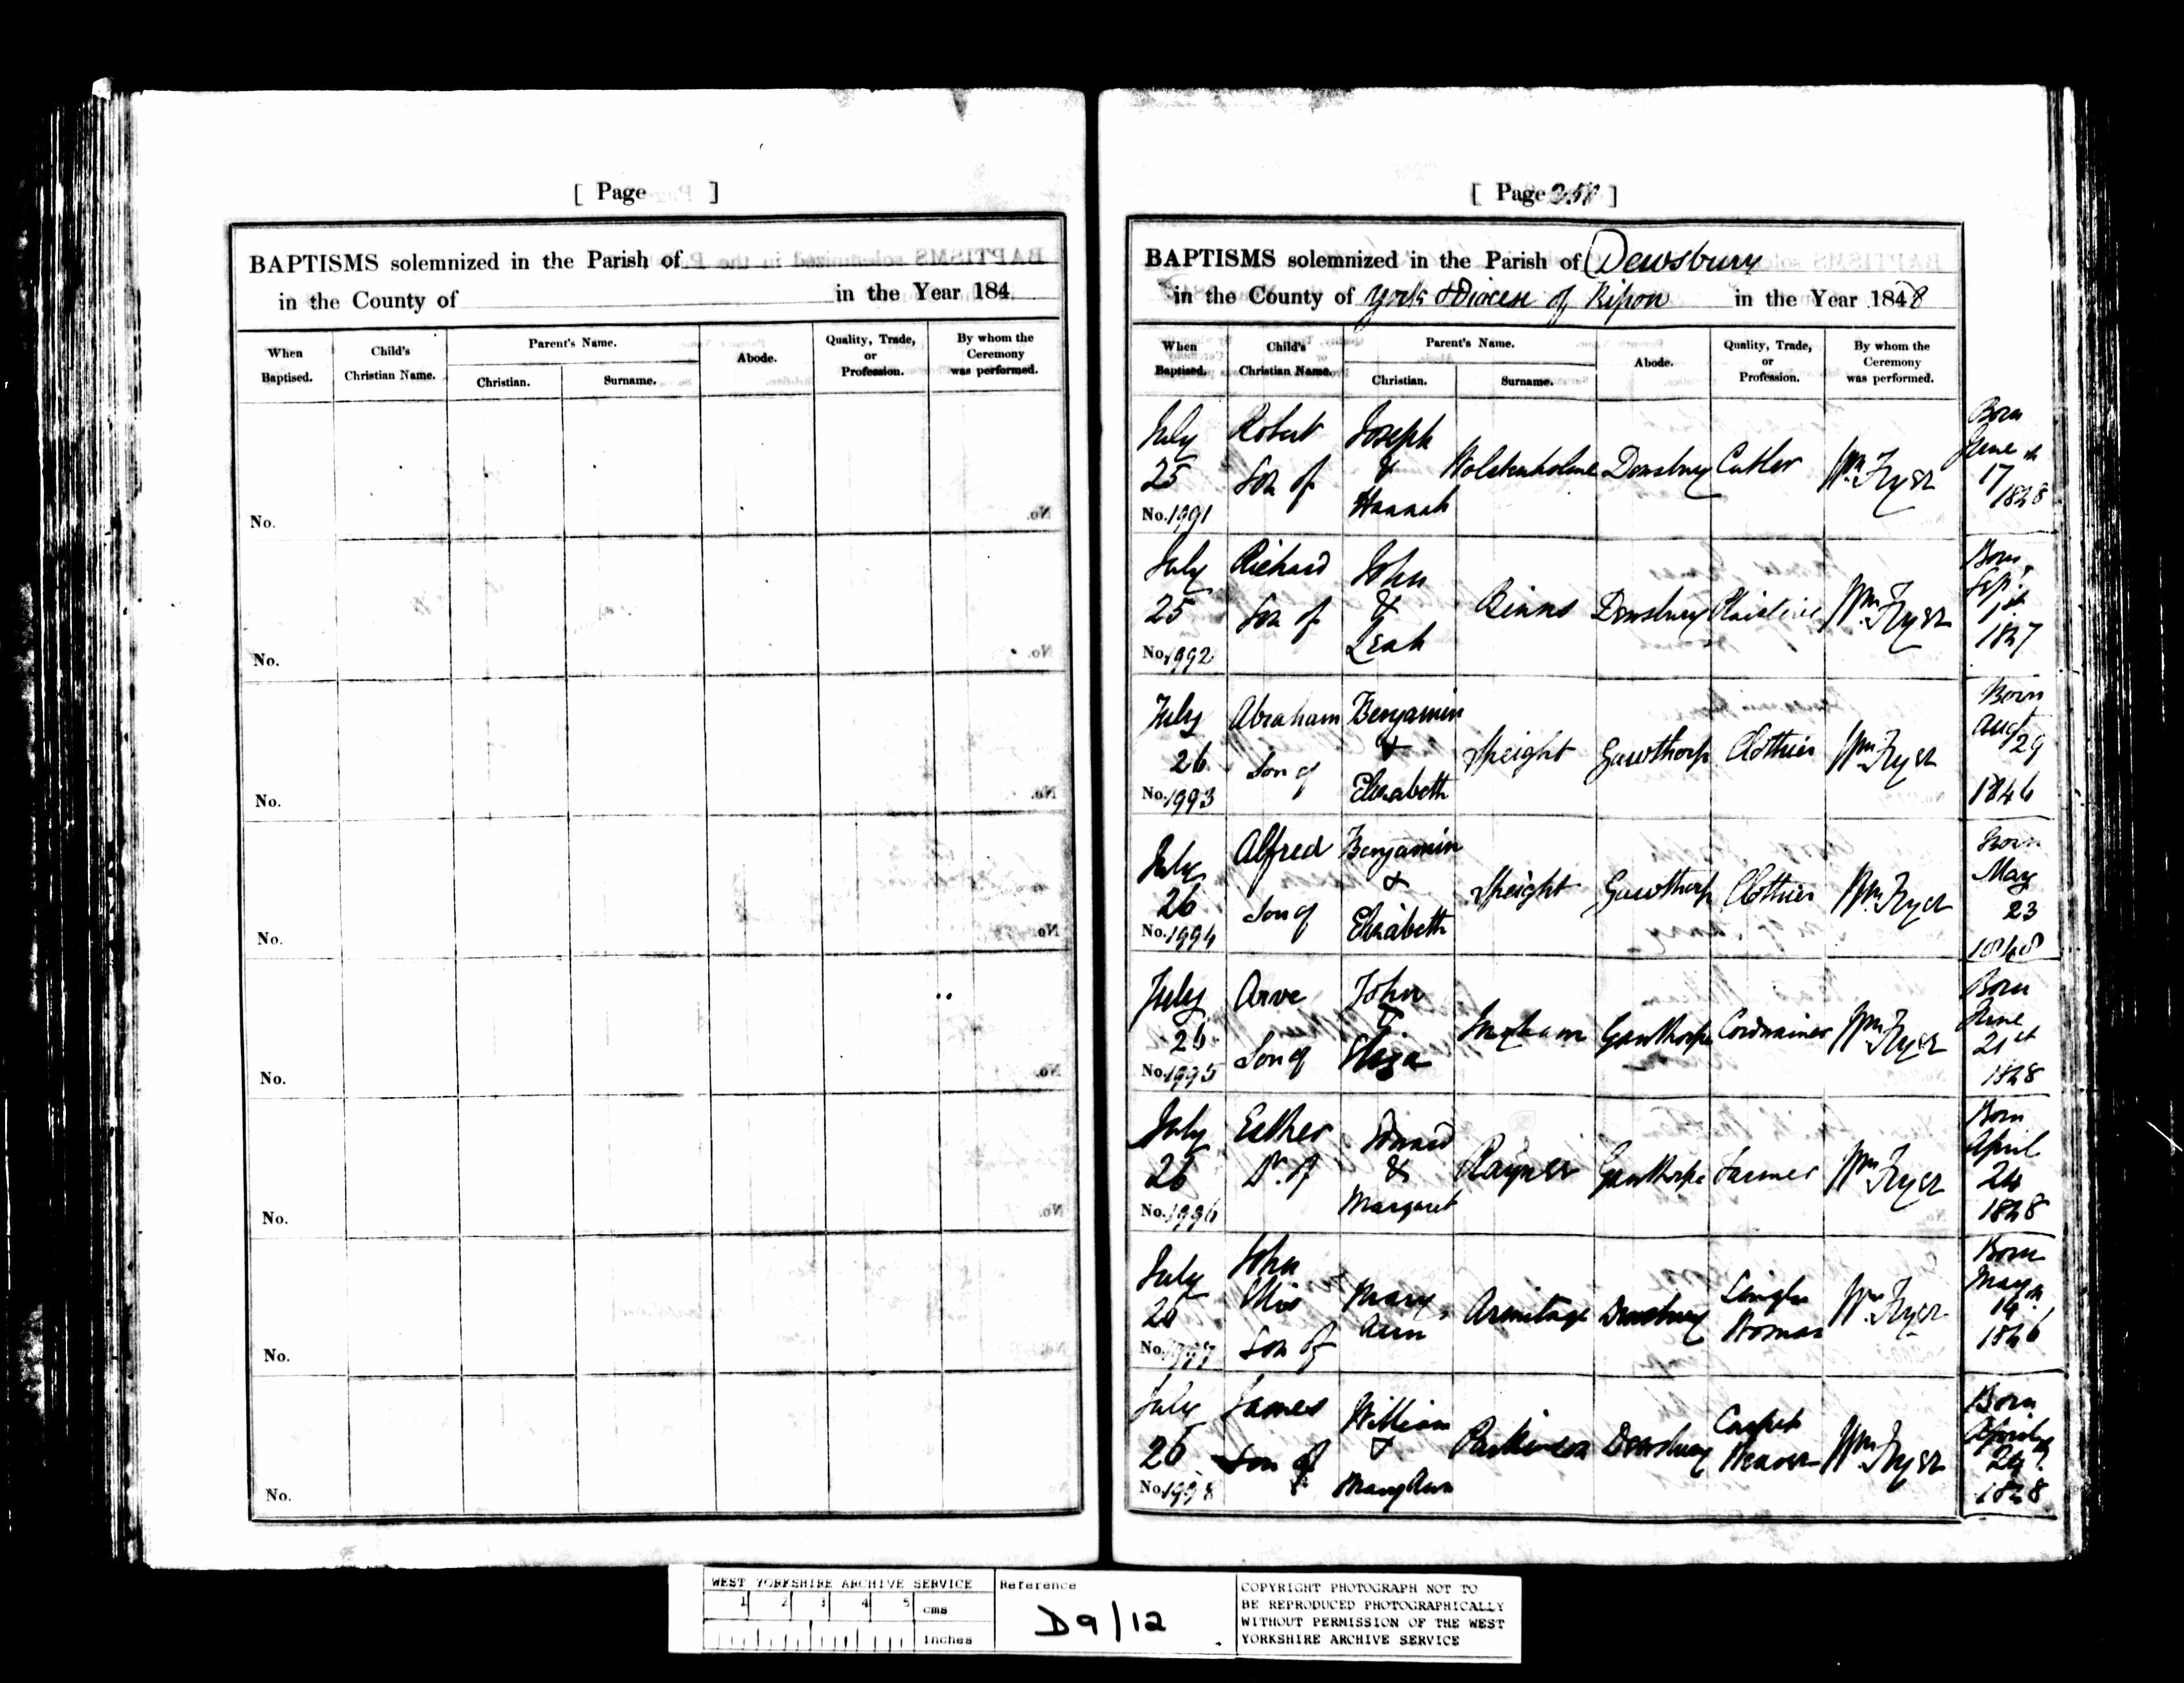 [ Page ]
BAPTISMS solemnized in the Parish of
in the County of in the Year 184
When Baptised.
Child's Christian Name.
Parent's Name.
Christian.
Surname.
Abode.
Quality, Trade, or Profession.
By whom the Ceremony was performed.
No.
No.
No.
No.
No.
No.
No.
No.
[ Page 258 ]
BAPTISMS solemnized in the Parish of Dewsbury
in the County of York & Diocese of Ripon in the Year 1848
When Baptised.
Child's Christian Name.
Parent's Name.
Christian.
Surname.
Abode.
Quality, Trade, or Profession.
By whom the Ceremony was performed.
July 25 No. 1991 Robert Son of Joseph & Hannah Wolstenholme Dewsbury Cutler Wm. Fryer Born June 17th 1848
July 25 No. 1992 Richard Son of John & Leah Binns Dewsbury Wm. Fryer Born Sept. 1st 1847
July 26 No. 1993 Abraham Son of Benjamin & Elizabeth Speight Gawthorp Clothier Wm. Fryer Born Augt 29 1846
July 26 No. 1994 Alfred Son of Benjamin & Elizabeth Speight Gawthorp Clothier Wm. Fryer Born May 23 1848
July 26 No. 1995 Son of John & Eliza Ingham Gawthorpe Cordwainer Wm. Fryer Born June 21st 1848
July 26 No. 1996 Esther Dr. of Edward & Margaret Rayner Gawthorpe Farmer Wm. Fryer Born April 24 1848
July 26 No. 1997 John Ellis Son of Mary Ann Armitage Dewsbury Single Woman Wm. Fryer Born May 14th 1846
July 26 No. 1998 James Son of William & Mary Ann Parkinson Dewsbury Carpet Weaver Wm. Fryer Born April 29th 1848
WEST YORKSHIRE ARCHIVE SERVICE
1 2 3 4 5 cms
inches
Reference
D9/12
COPYRIGHT PHOTOGRAPH NOT TO
BE REPRODUCED PHOTOGRAPHICALLY
WITHOUT PERMISSION OF THE WEST
YORKSHIRE ARCHIVE SERVICE